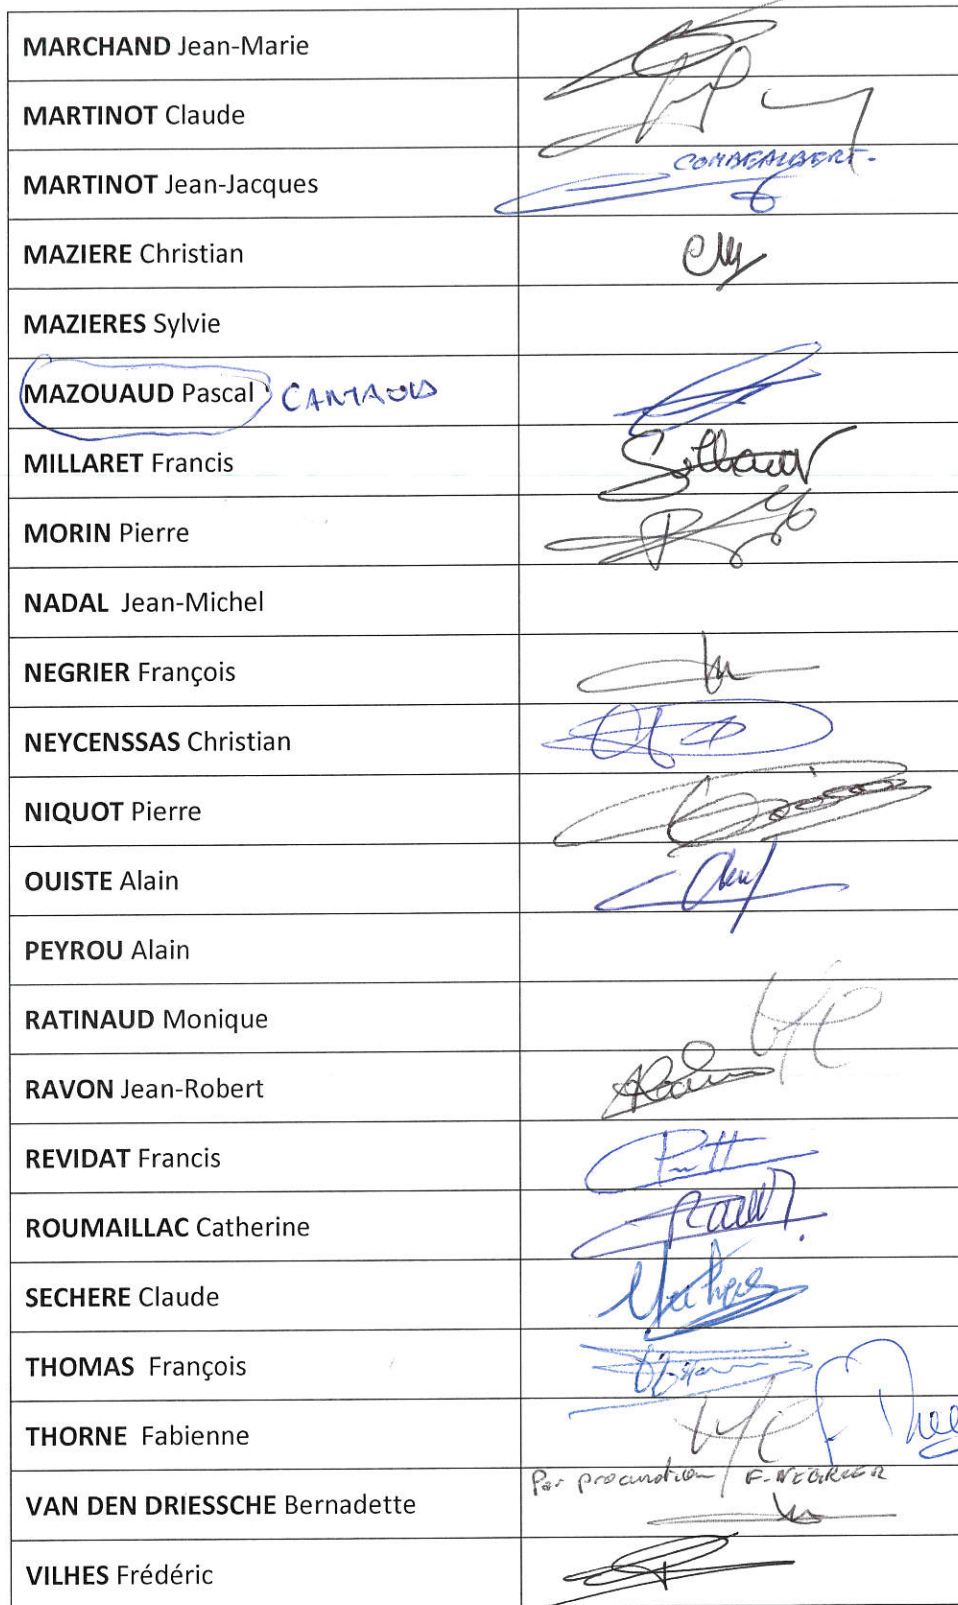 MARCHAND Jean-Marie
MARTINOT Claude
MARTINOT Jean-Jacques
COMBEALBERT-
MAZIERE Christian
MAZIERES Sylvie
MAZOUAUD Pascal CANTAOUS
MILLARET Francis
MORIN Pierre
NADAL Jean-Michel
NEGRIER François
NEYCENSSAS Christian
NIQUOT Pierre
OUISTE Alain
PEYROU Alain
RATINAUD Monique
RAVON Jean-Robert
REVIDAT Francis
ROUMAILLAC Catherine
SECHERE Claude
THOMAS François
THORNE Fabienne
Par procuration F. NEGRIER
VAN DEN DRIESSCHE Bernadette
VILHES Frédéric